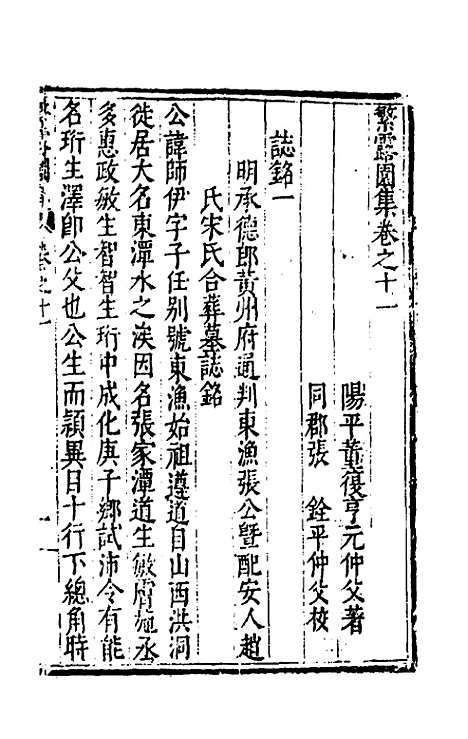 繁露園集卷之十一
陽平董復亨元仲父著
同郡張 銓平仲父校
誌銘一
明承德郎黃州府通判東漁張公暨配安人趙
氏宋氏合葬墓誌銘
公諱師伊字子任别號東漁始祖遵道自山西洪洞
徙居大名東潭水之涘因名張家潭道生敏膚施丞
多惠政敏生智智生珩中成化庚子鄉試沛令有能
名珩生澤卽公父也公生而穎異日十行下總角時
卷之十一
一